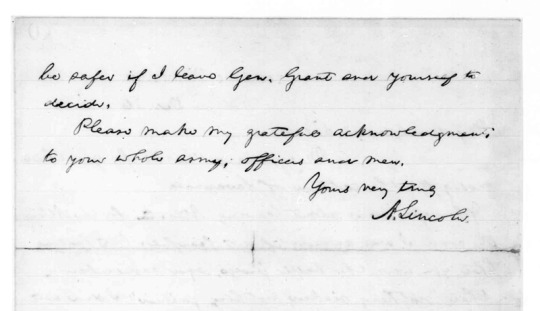 be safer if I leave Gen. Grant and yourself to
decide.
Please make my grateful acknowledgments
to your whole army, officers and men.
Yours very truly
A. Lincoln.